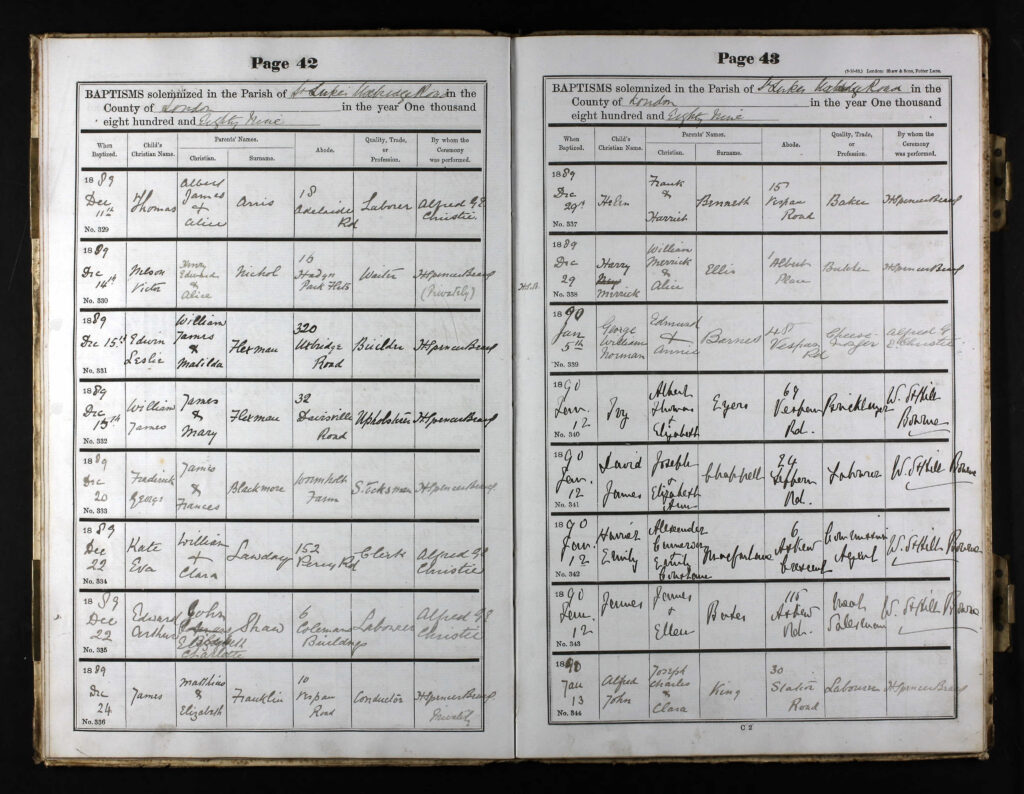 Page 42
BAPTISMS solemnized in the Parish of St Lukes Uxbridge Road in the
County of London in the year One thousand
eight hundred and Eighty Nine
When Baptized.
Child's Christian Name.
Parents' Names.
Christian.
Surname.
Abode.
Quality, Trade, or Profession.
By whom the Ceremony was performed.
1889 Dec 11th No. 329
Thomas
Albert James + Alice
Arris
18 Adelaide Rd
Laborer
Alfred G E Christie
1889 Dec 14th No. 330
Nelson Victor
Henry Edward & Alice
Nichol
16 Park Flats
Waiter
H Spencer Beard (Privately)
1889 Dec 15th No. 331
Edwin Leslie
William James & Matilda
Flexman
320 Uxbridge Road
Builder
H Spencer Beard
1889 Dec 15th No. 332
William James
James & Mary
Flexman
32 Davisville Road
Upholsterer
H Spencer Beard
1889 Dec 20 No. 333
Frederick George
James & Frances
Blackmore
Wormholt Farm
H Spencer Beard
1889 Dec 22 No. 334
Kate Eva
William + Clara
152 Percy Rd
Clerk
Alfred G E Christie
1889 Dec 22 No. 335
Edward Arthur
John Elizabeth Charlotte
Shaw
6 Coleman Buildings
Labourer
Alfred G E Christie
1889 Dec 24 No. 336
James
Matthias & Elizabeth
Franklin
10 Vespan Road
Conductor
H Spencer Beard Privately
Page 43
(9-10-88.) London: Shaw & Sons, Fetter Lane.
BAPTISMS solemnized in the Parish of St Lukes Uxbridge Road in the
County of London in the year One thousand
eight hundred and Eighty Nine
When Baptized.
Child's Christian Name.
Parents' Names.
Christian.
Surname.
Abode.
Quality, Trade, or Profession.
By whom the Ceremony was performed.
1889 Dec 29th No. 337
Helen
Frank & Harriet
Bennett
15 Vespan Road
Baker
H Spencer Beard
H.S.B.
1889 Dec 29 No. 338
Harry Merrick
William Merrick & Alice
Ellis
1 Albert Place
Butcher
H Spencer Beard
1890 Jan 5th No. 339
George William Norman
Edmund + Annie
Barnes
48 Vespan Rd
Cheesemonger
Alfred G E Christie
1890 Jan. 12 No. 340
Ivy
Albert Thomas & Elizabeth
Eyers
69 Vespan Rd.
Bricklayer
W. St Hill Bourne
1890 Jan. 12 No. 341
David James
Joseph + Elizabeth Ann
Chappell
24 Rd.
Labourer
W. St Hill Bourne
1890 Jan. 12 No. 342
Harriet Emily
Alexander
6 Askew Crescent
Commission Agent
W. St Hill Bourne
1890 Jan. 12 No. 343
James
James + Ellen
Bates
115 Askew Rd.
Salesman
W. St Hill Bourne
1890 Jan 13 No. 344
Alfred John
Joseph Charles & Clara
King
30 Station Road
Labourer
H Spencer Beard
C 2